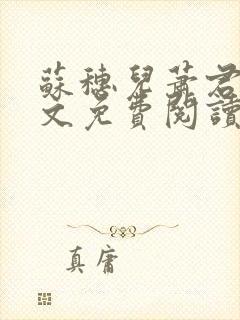 蘇穗兒蕭君
文免費閱讀
真庸